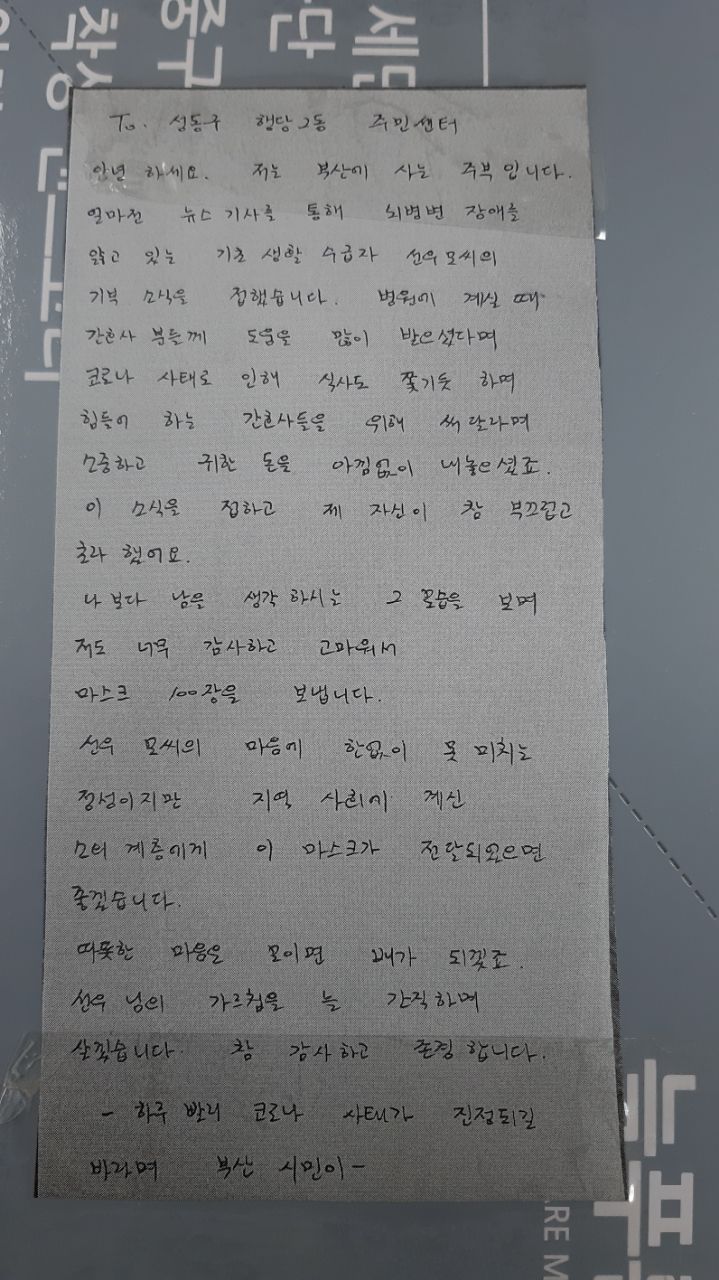 To. 성동구 행당2동 주민센터
안녕 하세요. 저는 부산에 사는 주부입니다.
얼마전 뉴스 기사를 통해 뇌병변 장애를
앓고 있는 기초 생활 수급자 선우 모씨의
기부 소식을 접했습니다. 병원에 계실 때
간호사 분들께 도움을 많이 받으셨다며
코로나 사태로 인해 식사도 쫓기듯 하며
힘들어 하는 간호사들을 위해 써 달라며
소중하고 귀한 돈을 아낌없이 내놓으셨죠.
이 소식을 접하고 제 자신이 참 부끄럽고
초라 했어요.
나 보다 남을 생각 하시는 그 모습을 보며
저도 너무 감사하고 고마워서
마스크 100장을 보냅니다.
선우 모씨의 마음에 한없이 못 미치는
정성이지만 지역 사회에 계신
소외 계층에게 이 마스크가 전달되었으면
좋겠습니다.
따뜻한 마음은 모이면 배가 되겠죠.
선우 님의 가르침을 늘 간직하며
살겠습니다. 참 감사하고 존경 합니다.
- 하루 빨리 코로나 사태가 진정되길
바라며 부산 시민이 -